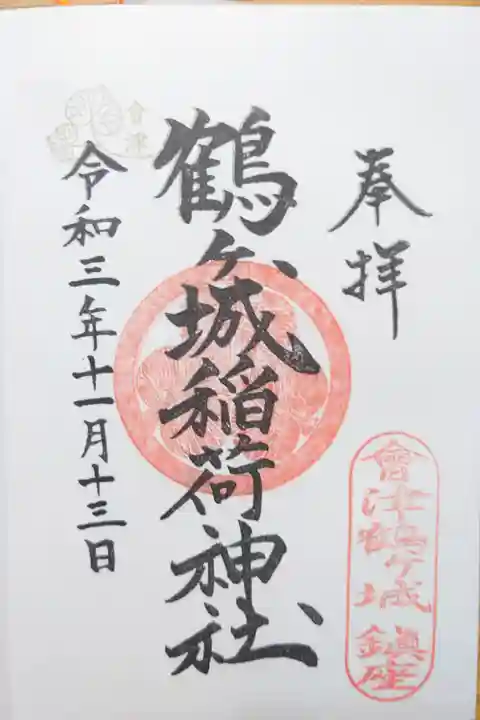 奉拝
會津鶴ヶ城鎮座
鶴ヶ城稲荷神社
令和三年十一月十三日
會津